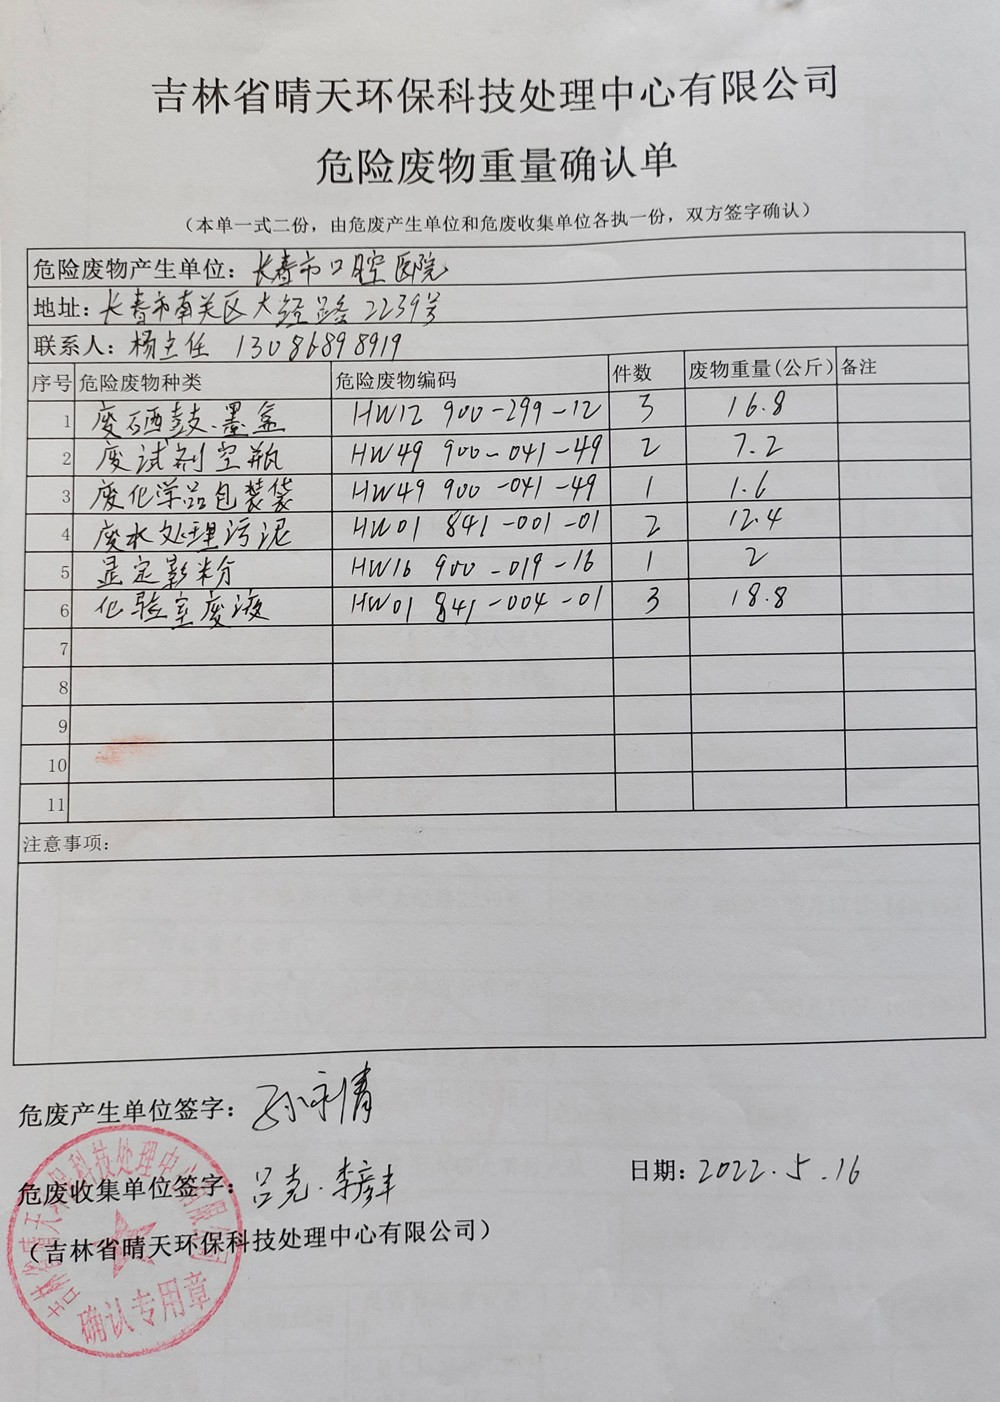 吉林省晴天环保科技处理中心有限公司
危险废物重量确认单
（本单一式二份，由危废产生单位和危废收集单位各执一份，双方签字确认）
危险废物产生单位：长春市口腔医院
地址：长春市南关区大经路2239号
联系人：杨主任 13086898919
序号 危险废物种类 危险废物编码 件数 废物重量(公斤) 备注
1 废硒鼓、墨盒 HW12 900-299-12 3 16.8
2 废试剂空瓶 HW49 900-041-49 2 7.2
3 废化学品包装袋 HW49 900-041-49 1 1.6
4 废水处理污泥 HW01 841-001-01 2 12.4
5 显定影粉 HW16 900-019-16 1 2
6 化验室废液 HW01 841-004-01 3 18.8
7
8
9
10
11
注意事项：
危废产生单位签字：孙永清
危废收集单位签字：吕克.李彦丰
日期：2022.5.16
（吉林省晴天环保科技处理中心有限公司）
吉林省晴天环保科技处理中心有限公司
确认专用章